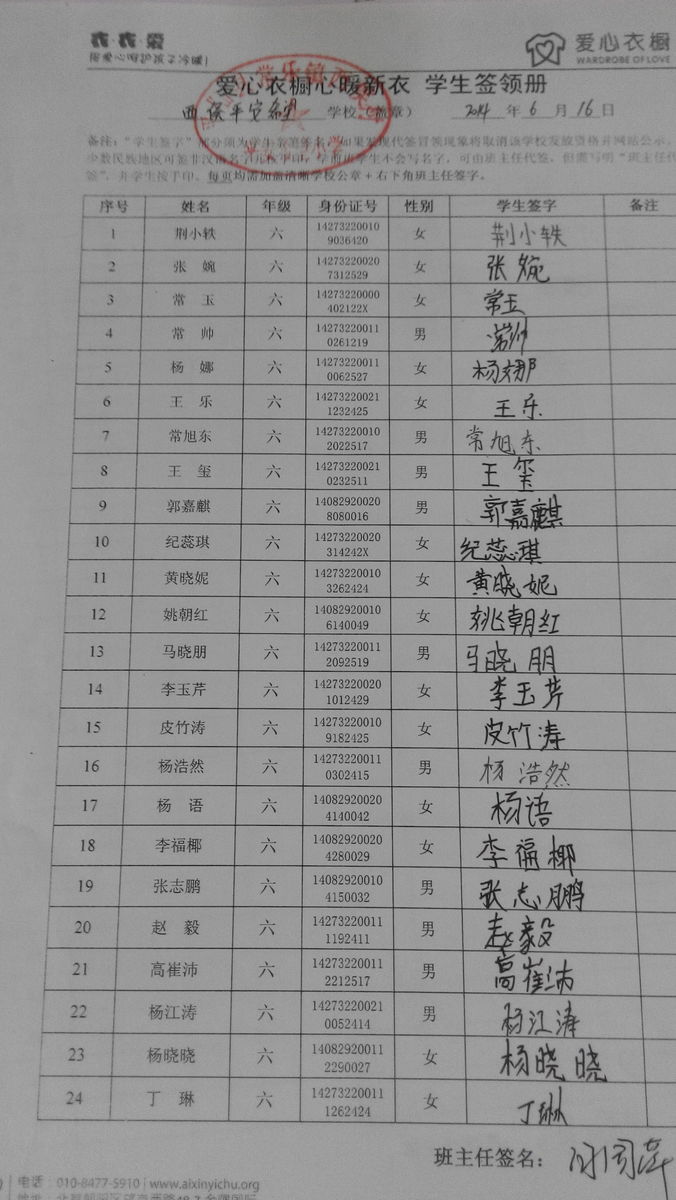 衣·衣·爱
用爱心呵护孩子冷暖!
爱心衣橱
WARDROBE OF LOVE
爱心衣橱心暖新衣 学生签领册
学校(盖章) 2014 年 6 月 16 日
备注:"学生签字"部分须为学生亲笔签名,如果发现代签冒领现象将取消该学校发放资格并网站公示。
少数民族地区可签非汉语名字
学生不会写名字,可由班主任代签,但需写明"班主任代
签",并学生按手印。每页均需加盖清晰学校公章+右下角班主任签字。
序号 姓名 年级 身份证号 性别 学生签字 备注
1 荆小轶 六 142732200109036420 女 荆小轶
2 张 婉 六 142732200207312529 女 张婉
3 常 玉 六 14273220000402122X 女 常玉
4 常 帅 六 142732200110261219 男 常帅
5 杨 娜 六 142732200110062527 女 杨娜
6 王 乐 六 142732200211232425 女 王乐
7 常旭东 六 142732200102022517 男 常旭东
8 王 玺 六 142732200210232511 男 王玺
9 郭嘉麒 六 140829200208080016 男 郭嘉麒
10 纪蕊琪 六 14273220020314242X 女 纪蕊琪
11 黄晓妮 六 142732200103262424 女 黄晓妮
12 姚朝红 六 140829200106140049 女 姚朝红
13 马晓朋 六 142732200112092519 男 马晓朋
14 李玉芹 六 142732200201012429 女 李玉芹
15 皮竹涛 六 142732200109182425 女 皮竹涛
16 杨浩然 六 142732200110302415 男 杨浩然
17 杨 语 六 140829200204140042 女 杨语
18 李福椰 六 140829200204280029 女 李福椰
19 张志鹏 六 140829200104150032 男 张志鹏
20 赵 毅 六 142732200111192411 男 赵毅
21 高崔沛 六 142732200112212517 男 高崔沛
22 杨江涛 六 142732200210052414 男 杨江涛
23 杨晓晓 六 140829200112290027 女 杨晓晓
24 丁 琳 六 142732200111262424 女 丁琳
班主任签名:
电话:010-8477-5910 | www.aixinyichu.org